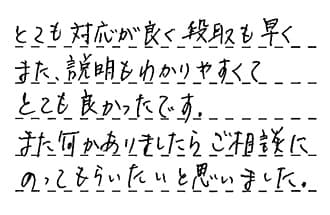 とても対応が良く段取も早く
また、説明もわかりやすくて
とても良かったです。
また何かありましたらご相談に
のってもらいたいと思いました。